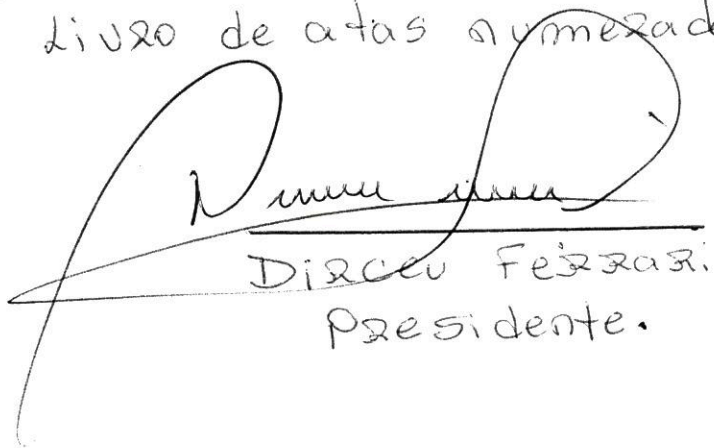 Livro de atas numerad
Dirceu Ferrari.
Presidente.